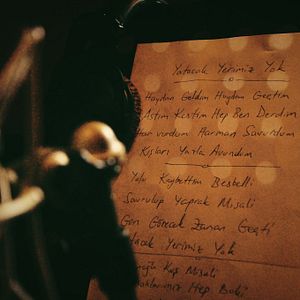 Yatacak Yerimiz Yok
Haydan Geldim Huydan Geçtim
Astım Kestim Hep Ben Derdim
Har vurdum Harman Savurdum
Kışları Yazla Avundum
Yolu Kaybettim Besbelli
Savrulup Yaprak Misali
Gün Görecek Zaman Geçti
Yatacak Yerimiz Yok
Kuş Misali
Hep Baki